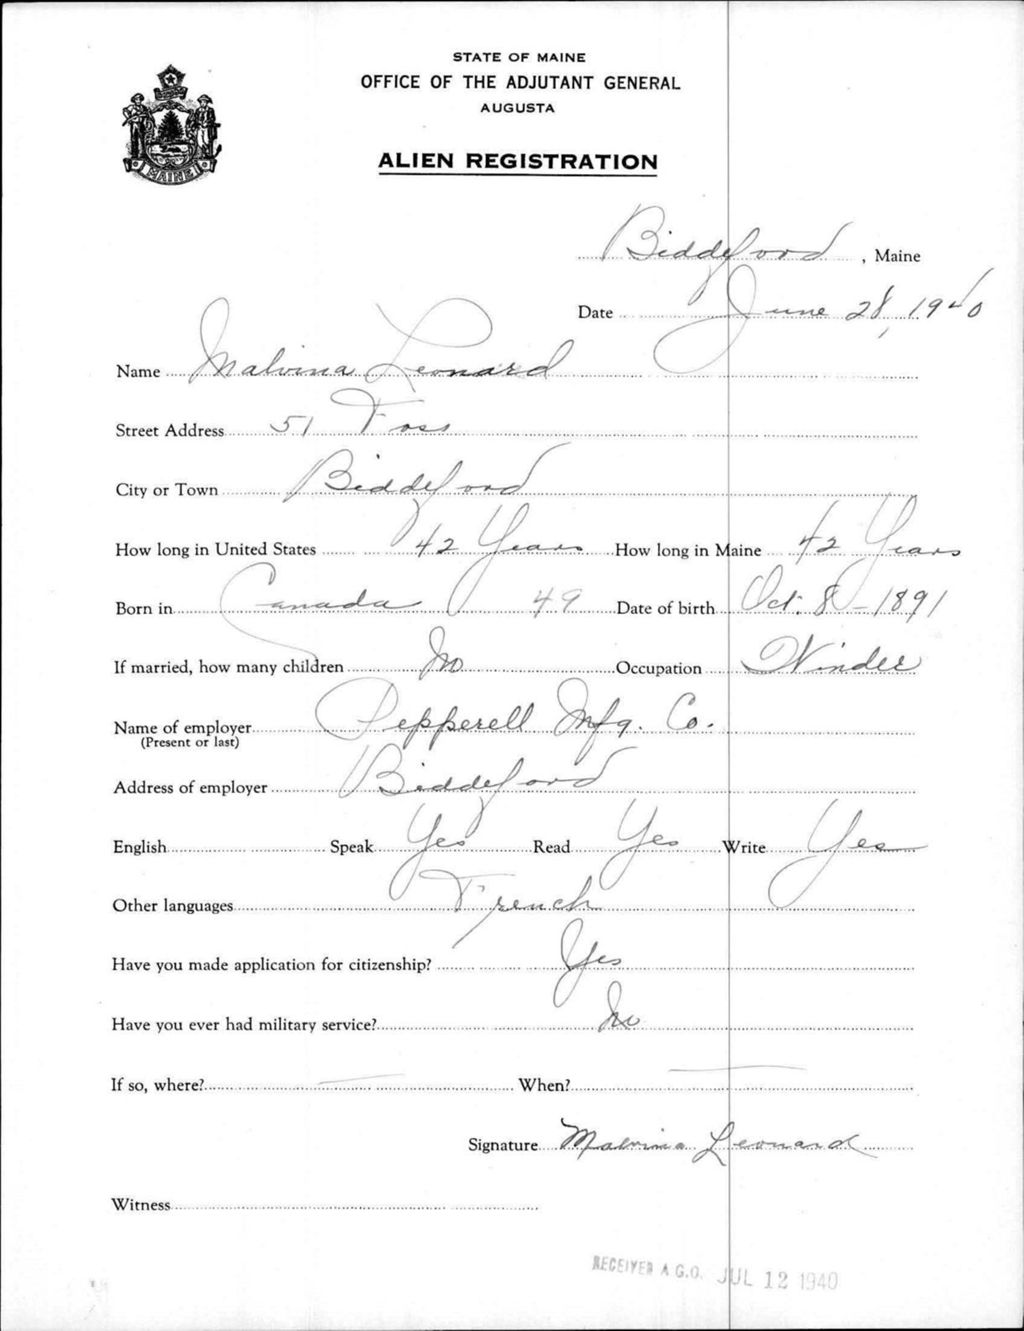 STATE OF MAINE
OFFICE OF THE ADJUTANT GENERAL
AUGUSTA
ALIEN REGISTRATION
MAINE
Biddeford, Maine
Date June 28, 1940
Name Malvina Leonard
Street Address 51 Foss
City or Town Biddeford
How long in United States 42 Years How long in Maine 42 Years
Born in Canada 49 Date of birth Oct. 8 - 1891
If married, how many children No Occupation Winder
Name of employer Pepperell Mfg. Co.
(Present or last)
Address of employer Biddeford
English Speak Yes Read Yes Write Yes
Other languages French
Have you made application for citizenship? Yes
Have you ever had military service? No
If so, where? — When? —
Signature Malvina Leonard
Witness
RECEIVED A.G.O. JUL 12 1940